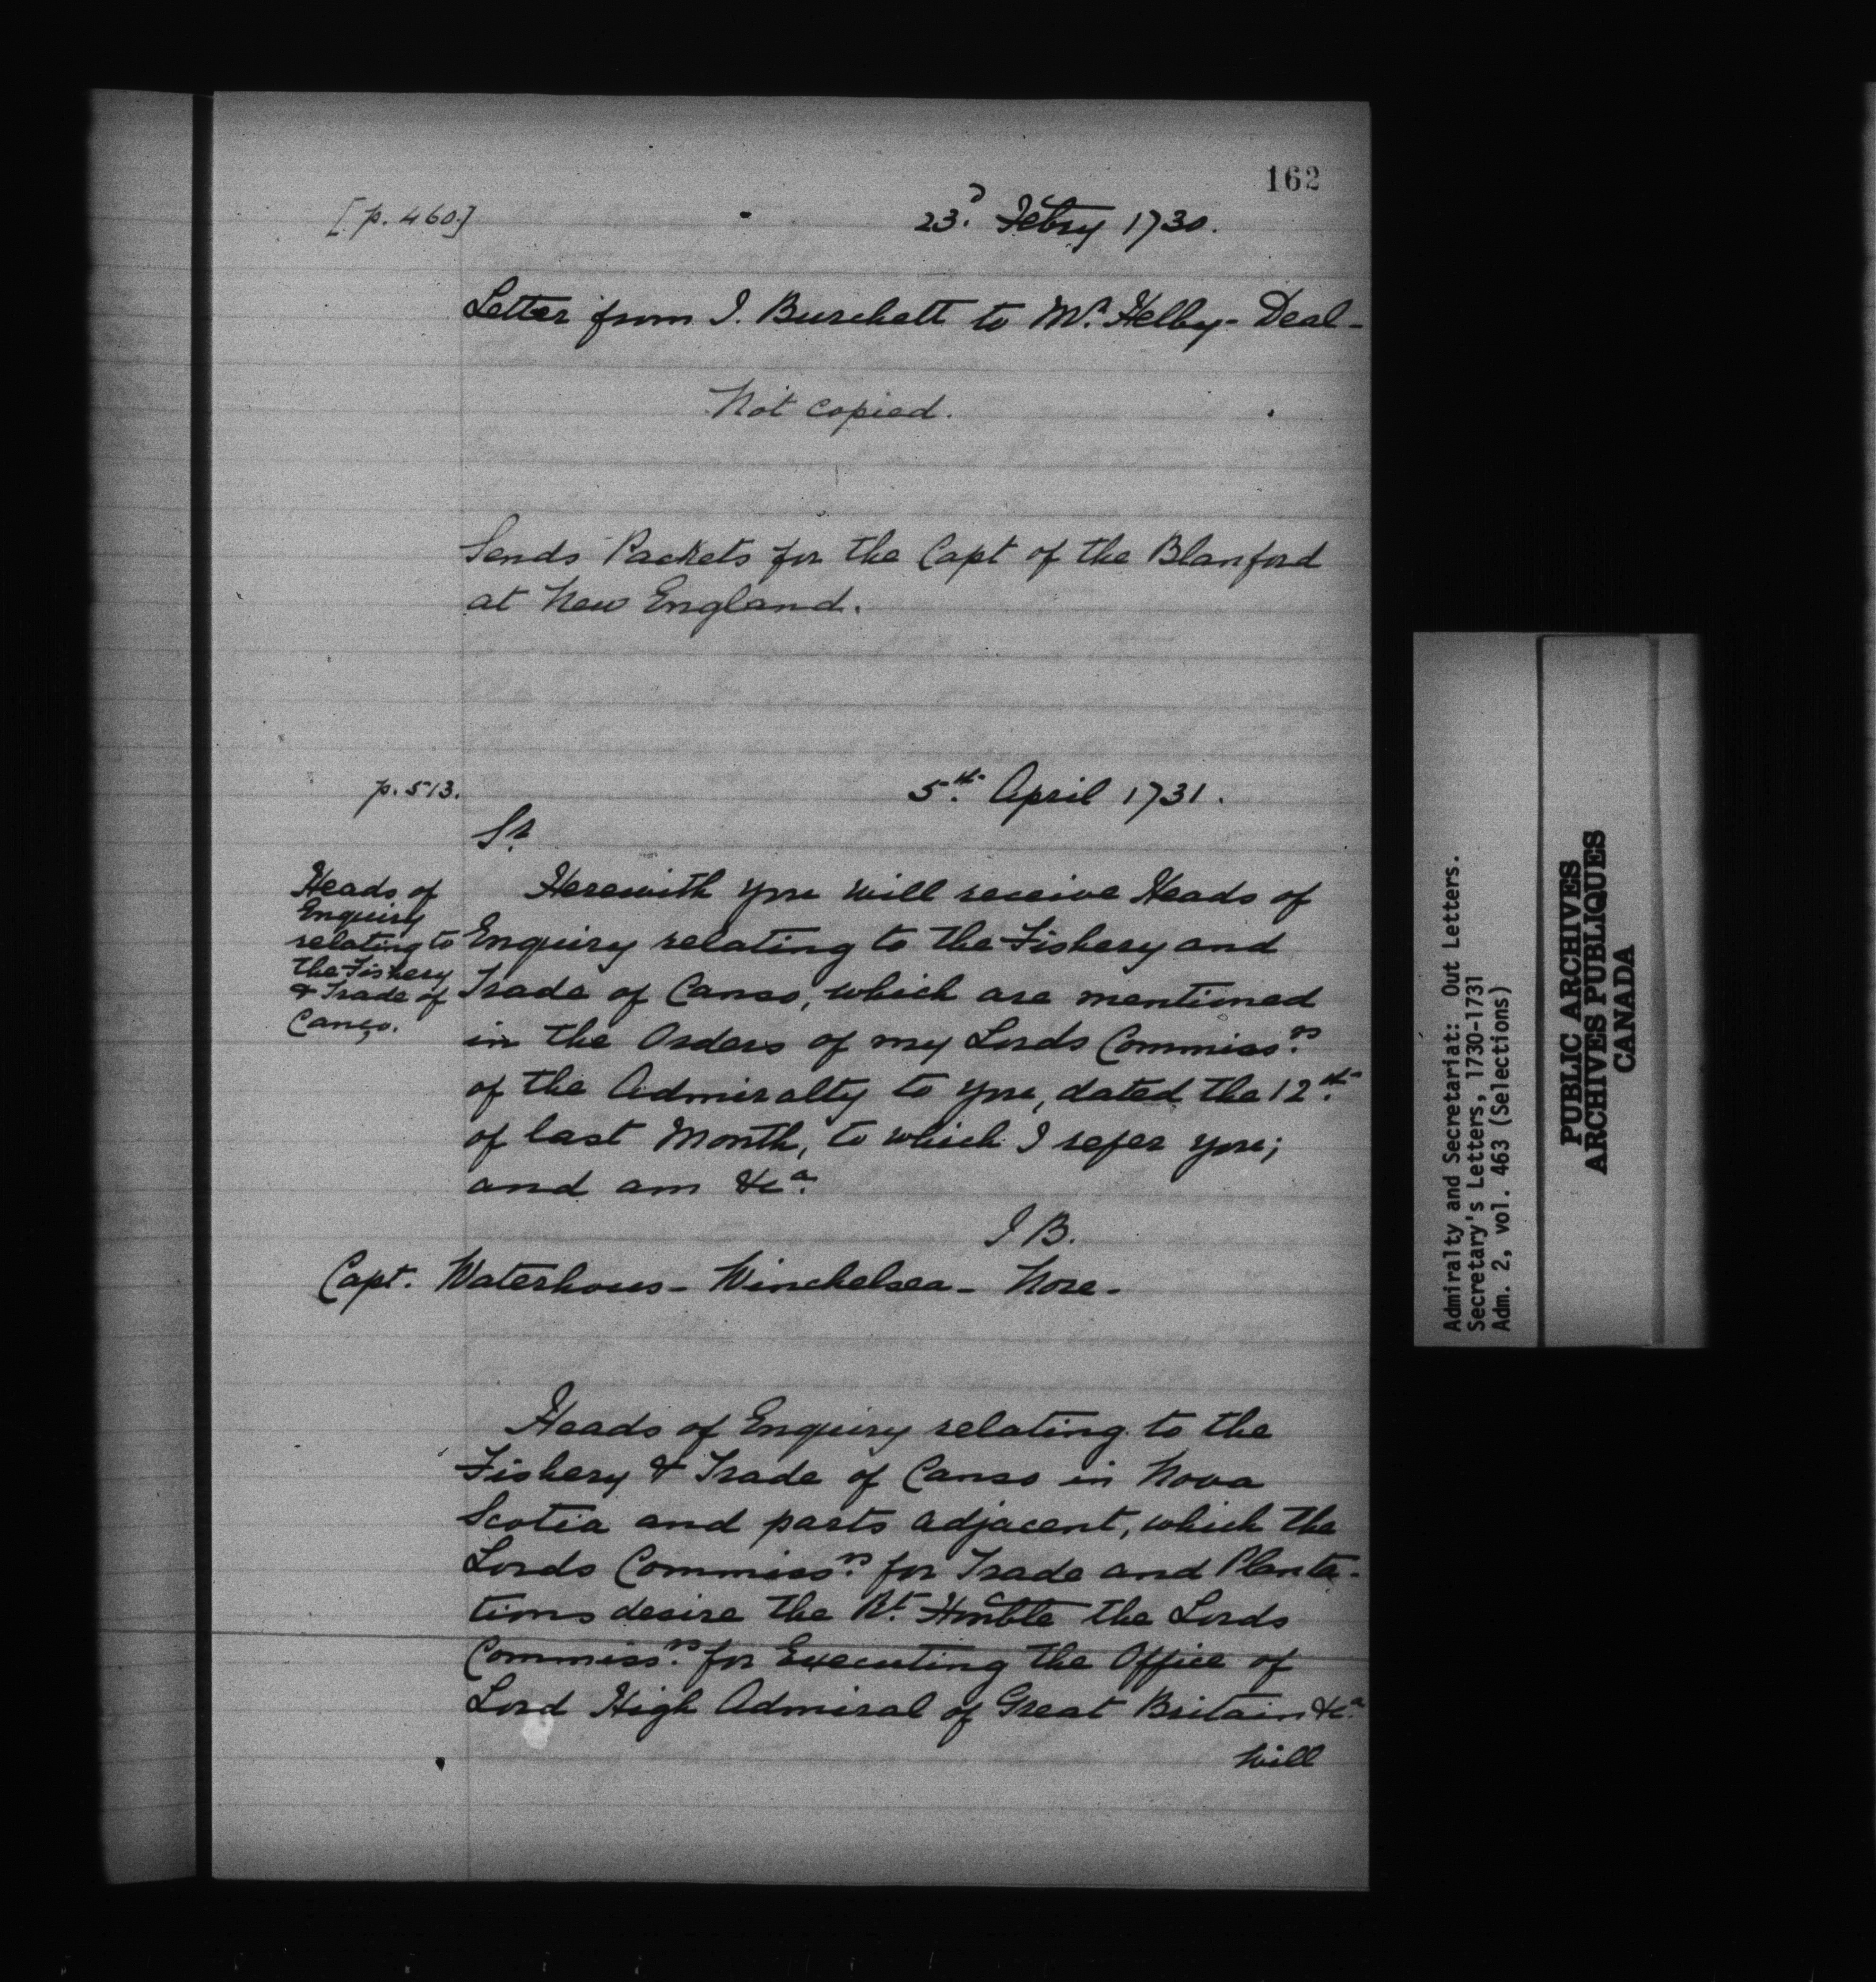 162
[p. 460]
23.d Febry 1730.
Letter from J. Burchett to Mr. Helby - Deal -
Not copied.
Sends Packets for the Capt of the Blanford
at New England.
p. 513.
5.th April 1731.
Sr.
Heads of
Enquiry
relating to
the Fishery
& Trade of
Canço.
Herewith you will receive Heads of
Enquiry relating to the Fishery and
Trade of Canso, which are mentioned
in the Orders of my Lords Commiss.rs
of the Admiralty to you, dated the 12.th
of last Month, to which I refer you;
and am &c.a
J B.
Capt. Waterhous - Winchelsea - Nore -
Heads of Enquiry relating to the
Fishery & Trade of Canso in Nova
Scotia and parts adjacent, which the
Lords Commiss.rs for Trade and Planta-
tions desire the Rt. Honble the Lords
Commiss.rs for Executing the Office of
Lord High Admiral of Great Britain &c.a
will
Admiralty and Secretariat: Out Letters.
Secretary's Letters, 1730-1731
Adm. 2, vol. 463 (Selections)
PUBLIC ARCHIVES
ARCHIVES PUBLIQUES
CANADA